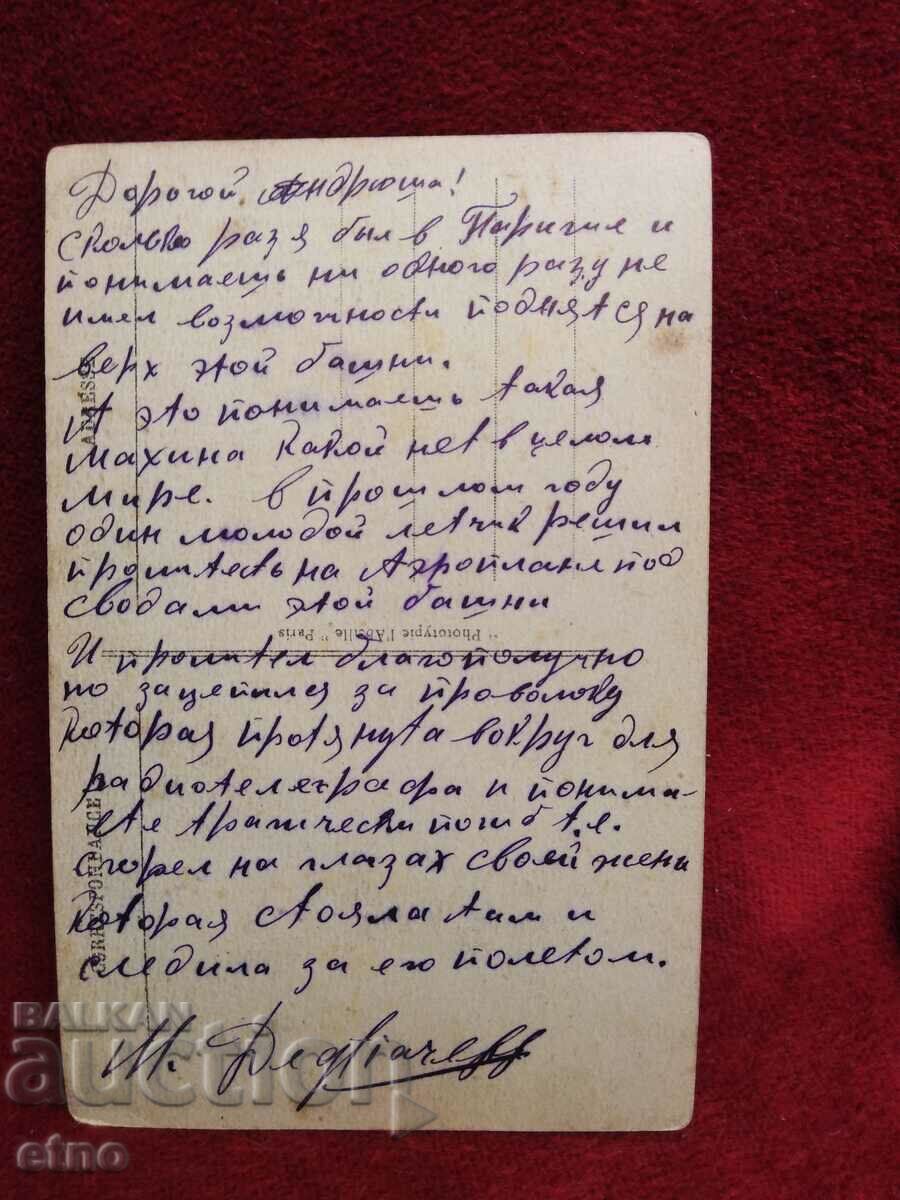 Дорогой Андрюша!
сколько раз я был в Париже и
понимаешь ни одного разу не
имел возможности поднятся на
верх этой башни.
А это понимаешь такая
махина какой нет в целом
мире. в прошлом году
один молодой летчик решил
пролитеть на Аэроплане под
сводами этой башни
И пролител благополучно
но зацепился за проволоку
которая протянута вокруг для
радиотелеграфа и понима-
ете трагически погиб т.е.
сгорел на глазах своей жены
которая стояла там и
следила за его полетом.
М.
ADRESSE
CORRESPONDANCE
" Phototypie l'Abeille " Paris
BALKAN
auction
etno